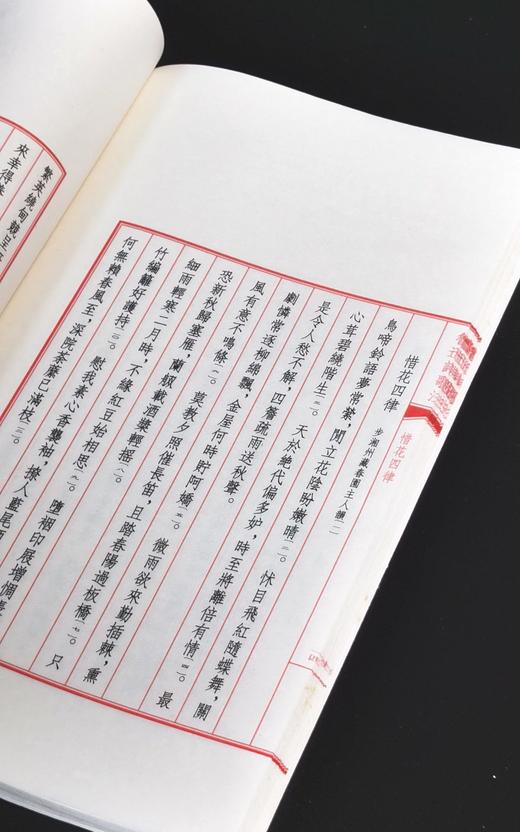 惜花四律　步湘州藏春園主人韻〔一〕
鳥啼鈴語夢常縈，閒立花陰盼嫩晴〔二〕。怵目飛紅隨蝶舞，關
心茸碧繞階生〔三〕。天於絕代偏多妒，時至將離倍有情〔四〕。最
是令人愁不解，四簷疏雨送秋聲。
劇憐常逐柳綿飄，金屋何時貯阿嬌〔五〕。微雨欲來勤插棘，熏
風有意不鳴條〔六〕。莫教夕照催長笛，且踏春陽過板橋〔七〕。只
恐新秋歸塞雁，蘭艭載酒槳輕搖〔八〕。
細雨輕寒二月時，不緣紅豆始相思〔九〕。墮裀印屐增惆
竹編籬好護持〔一〇〕。慰我素心香襲袖，撩人藍尾
何無賴春風至，深院荼蘼已滿枝〔一二〕。
惜花四律
繁英繞甸競呈
來幸得